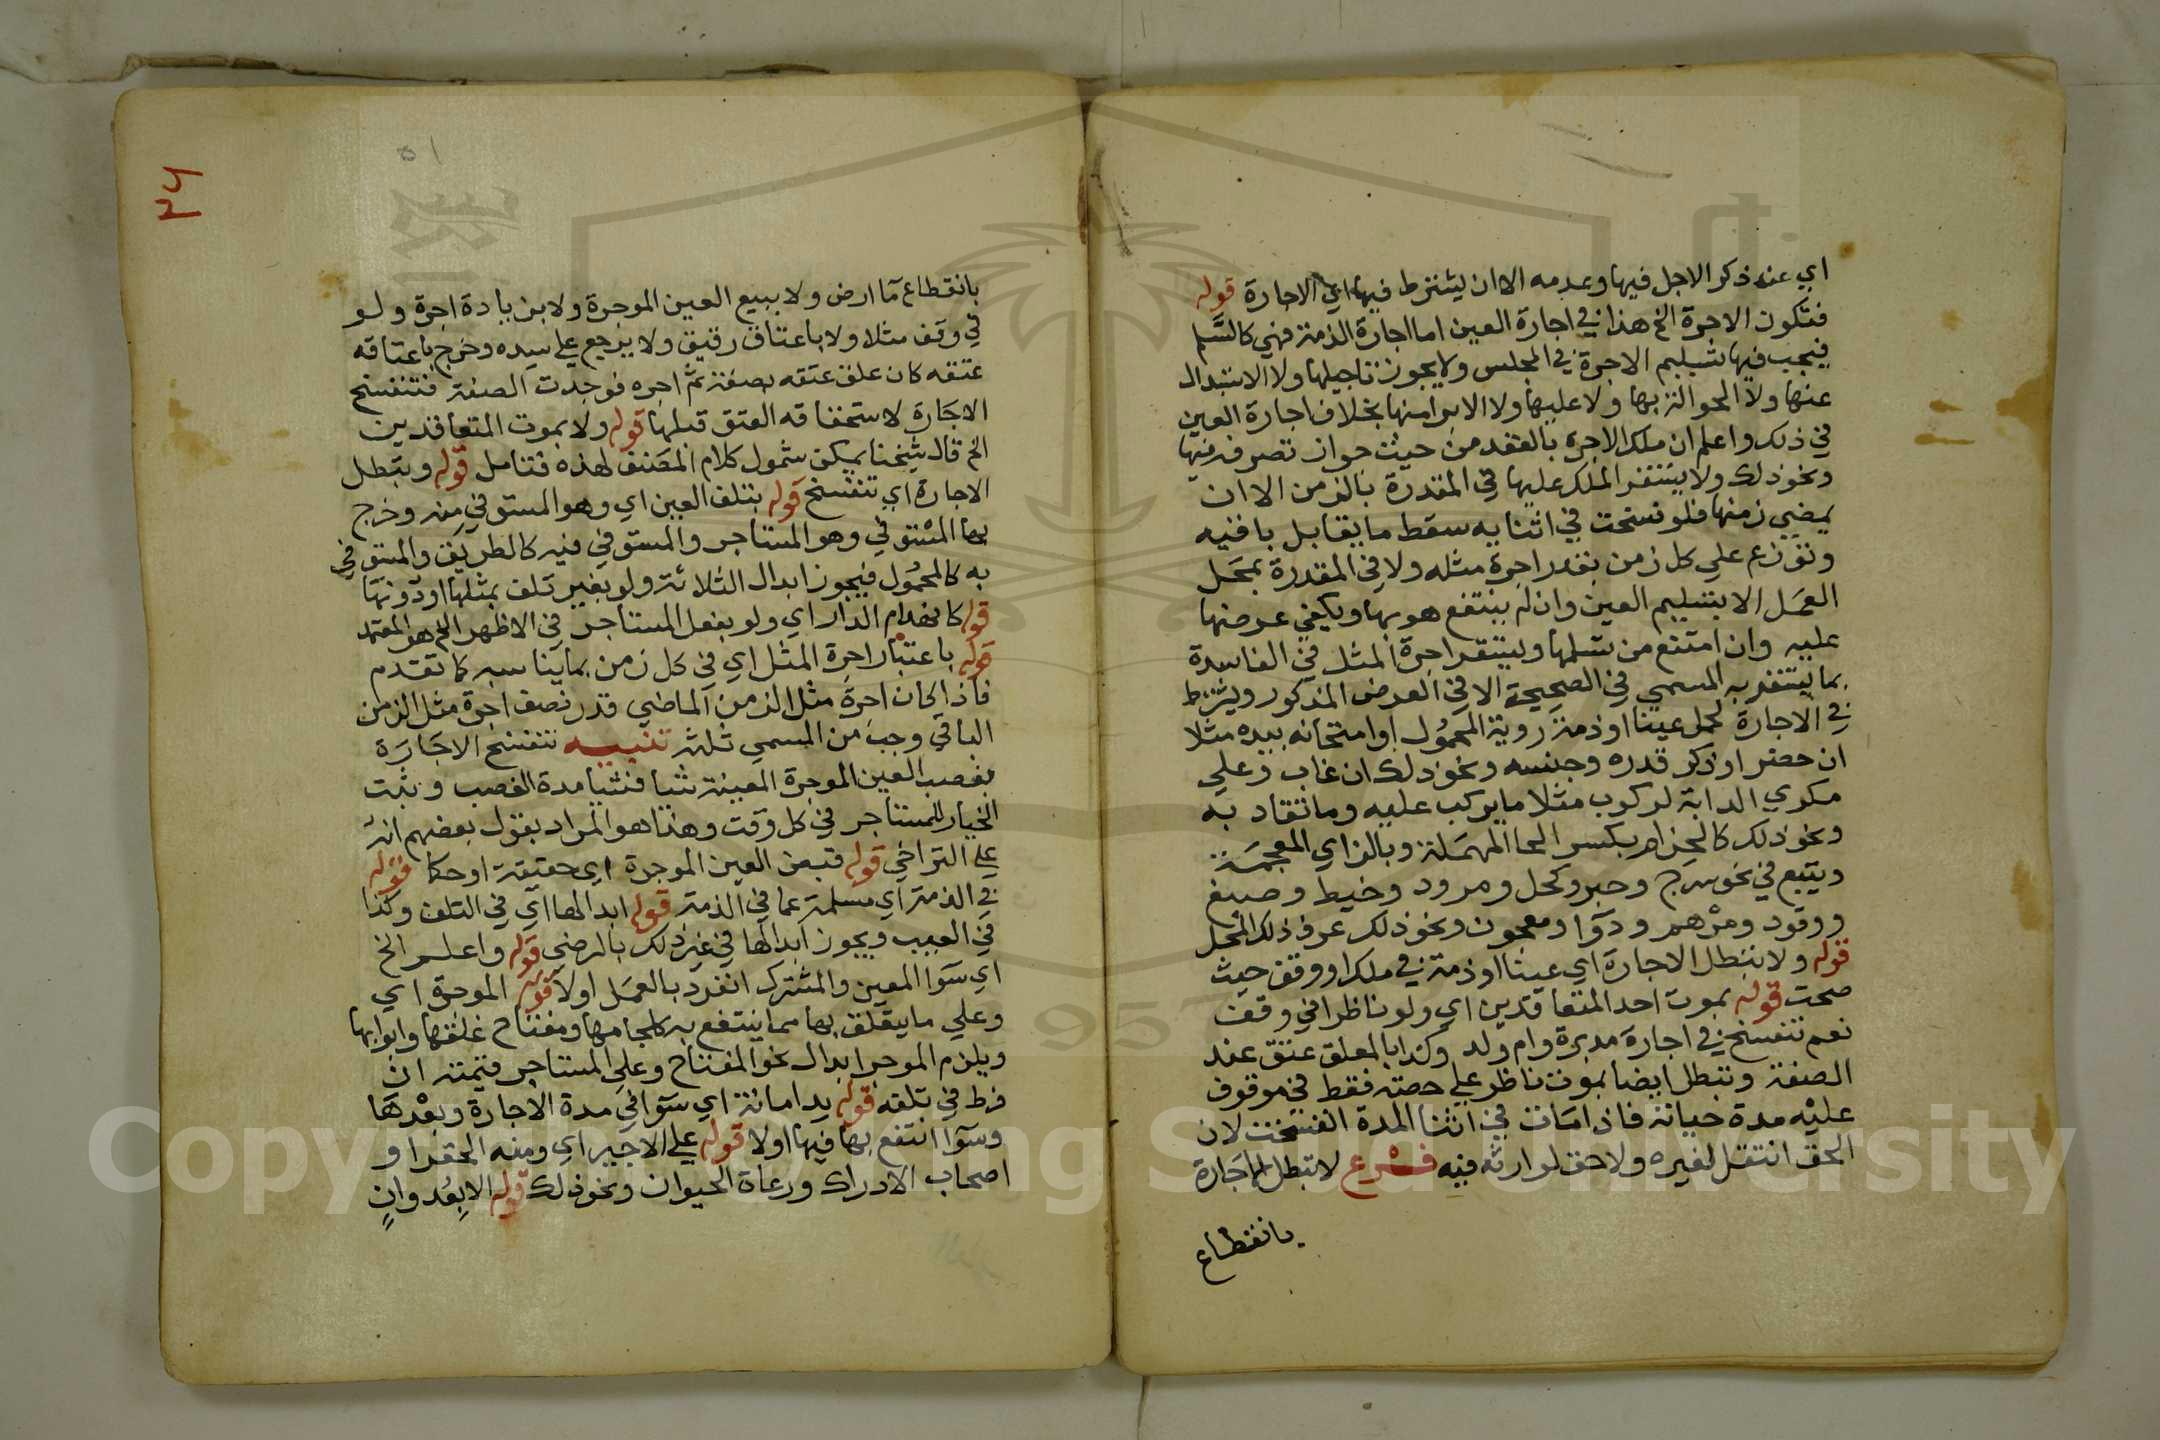 اي عند ذكر الاجل فيها وعدمه الا ان يشترط فيها اي الاجارة قوله
فتكون الاجرة الخ هذا في اجارة العين اما اجارة الذمة فهي كالسَّلم
فيجب فيها تسليم الاجرة في المجلس ولا يجوز تاجيلها ولا الاستبدال
عنها ولا الحوالة بها ولا عليها ولا الابرا منها بخلاف اجارة العين
في ذلك واعلم ان ملك الاجرة بالعقد من حيث جواز تصرفه فيها
ونحو ذلك ولا يستقر الملك عليها في المقدرة بالزمن الا ان
يمضي زمنها فلو فسخت في اثنايه سقط ما يقابل باقيه
وتوزع علي كل زمن بقدر اجرة مثله ولا في المقدرة بمحَل
العمَل الا بتسليم العين وان لم ينتفع هو بها ويكفي عرضها
عليه وان امتنع من تسلمها ويستقر اجرة المثل في الفاسدة
بما يستقر به المسمي في الصحيحة الا في العرض المذكور ويشترط
في الاجارة لحمل عينا او ذمة روية المحمُول او امتحانه بيده مثلا
ان حضر او ذكر قدره وجنسه ونحو ذلك ان غاب وعلي
مكري الدابة لركوب مثلا ما يركب عليه وما تقاد به
ونحو ذلك كالحزام بكسر الحا المهمَلة وبالزاي المعجمَة
ويتبع في نحو سرج وحبر وكحل ومرود وخيط وصبغ
ووقود ومرْهم ودوَا ومعجون ونحو ذلك عرف ذلك المحل
قوله ولا تبطل الاجارة اي عينا او ذمة في ملك او وقف حيث
صحت قوله بموت احد المتعاقدين اي ولو ناظرا في وقف
نعم تنفسخ في اجارة مدبرة وام ولد وكذا بالمعلق عتق عند
الصفة وتبطل ايضا بموت ناظر علي حصته فقط في موقوف
عليْه مدة حياته فاذا مَات في اثنا المدة انفسخت لان
الحق انتقل لغيره ولا حق لوارثه فيه فــرع لا تبطل الاجَارة
بانقطاع
٢٤
٥١
بانقطاع مَا ارض ولا ببيع العين الموجرة ولا بزيادة اجرة ولو
في وقف مثلا ولا باعتاق رقيق ولا يرجع علي سيده وخرج باعتاقه
عتقه كان علق عتقه بصفة ثم اجره فوجدت الصفة فتنفسخ
الاجَارة لاستحقاقه العتق قبلها قوله ولا بموت المتعاقدين
الخ قال شيخنا يمكن شمول كلام المصنف لهذه فتامل قوله وتبطل
الاجارة اي تنفسخ قوله بتلف العين اي وهو المستوفي منه وخرج
بها المستوفي وهو المستاجر والمستوفي فيه كالطريق والمستوفي
به كالمحمُول فيجوز ابدال الثلاثة ولو بغير تلف بمثلها او دونها
قوله كانهدام الدار اي ولو بفعل المستاجر في الاظهر الخ هو المعتمد
قوله باعتبار اجرة المثل اي في كل زمن بما يناسبه كما تقدم
فاذا كان اجرة مثل الزمن الماضي قدر نصف اجرة مثل الزمن
الباقي وجبَ من المسمي ثلثه تنبيــه تنفسخ الاجَارَة
بغصب العين الموجرة المعينة شيا فشيا مدة الغصب وثبت
الخيار للمستاجر في كل وقت وهذا هو المراد بقول بعضهم انه
علي التراخي قوله قبض العين الموجرة اي حقيقة او حكما قوله
في الذمة اي مسلمة عما في الذمة قوله ابدالها اي في التلف وكذا
في العيب ويجوز ابدالها في غير ذلك بالرضي قوله واعلــم الخ
اي سَوَا المعين والمشترك انفرد بالعمَل اولا قوله الموجرة اي
وعلي ما يتعلق بها مما ينتفع به كلجامها ومفتاح غلقها وابوابها
ويلزم الموجر ابدال نحو المفتاح وعلي المستاجر قيمته ان
فرط في تلفه قوله يد امانة اي سوَا في مدة الاجارة وبعْدهَا
وسوَا انتفع بها فيها اولا قوله علي الاجير اي ومنه الخفرا و
اصحاب الادراك ورعاة الحيوان ونحو ذلك قوله الا بعُدوانٍ
Copyright © King Saud University